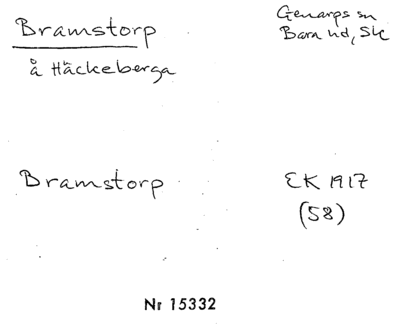 Bramstorp
å Häckeberga
Genarps sn
Bara hd, Sk
Bramstorp
EK 1917
(58)
Nr 15332